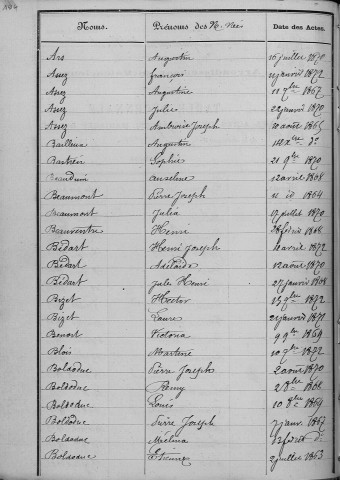 Noms. Prénoms des N. Nés Date des Actes.
Ars Augustin 16 juillet 1870
Auez François janvier 1872
Auez Augustine 11 9bre 1867
Auez Julie 22 janvier 1870
Auez Ambroise Joseph 10 août 1865
Bailleux Augustin 14 Xbre do
Bastien Sophie 21 9bre 1870
Beauduin Anselme 12 avril 1868
Beaumont Pierre Joseph 11 id 1864
Beaumont Julia 17 juillet 1870
Beauventre Henri 28 février 1868
Bédart Henri Joseph 10 avril 1872
Bédart Adélaïde 12 août 1870
Bédart Jules Henri 27 janvier 1868
Bizet Hector 15 9bre 1872
Bizet Laure 21 janvier 1872
Benoit Victoria 9 9bre 1869
Blois Martine 10 9bre 1872
Bolduduc Pierre Joseph 2 août 1870
Bolduduc Rémy 2 8bre 1868
Bolduduc Louis 10 Xbre 1869
Bolduduc Pierre Joseph 7 janvr 1867
Bolduduc Mélina 12 février do
Bolduduc Etienne 2 juillet 1863